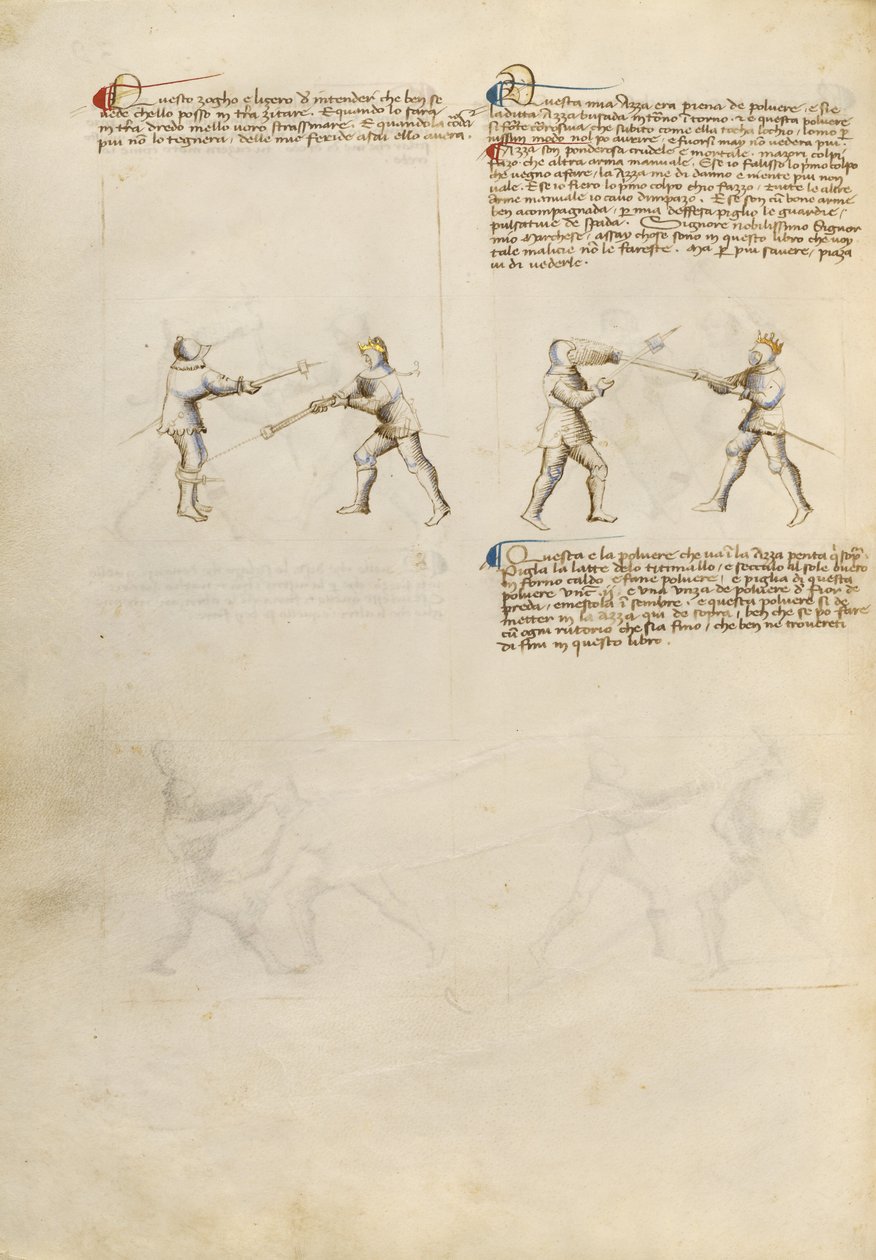 Questo zogho e ligero d'intender che ben se
vede chello posso in t'ra zitare. E quando lo farà
in t'ra dredo mello uoro strassinare. E quando la coda
più nõ lo tegnera, delle mie feride asai ello auera.
Questa mia Azza era piena de poluere, e si e
la dita Azza busada intorno ĩtorno. & e questa poluere
si forte corosiua che subito come ella tocha lochio, lomo p
nissun modo nol po aurire, e fuorsi may nõ vedera più.
Azza son ponderosa crudele e mortale. mazori colpi
fazo che altra arma manuale. E se io falisso lo p'mo colpo
che vegno a fare, la Azza me di danno e niente più non
vale. E se io fiero lo p'mo colpo ch'io fazzo, tutte le altre
arme manuale io cauo d'impazo. E se son cũ bone arme
ben acompagnada, p mia deffesa piglio le guardie,
pulsatiue de spada. Signore nobilissimo Signor
mio Marchese, assay chose sono in questo libro che uoy
tale malicie nõ le fareste. Ma p più sauere, piaza
ui di uederle.
Questa e la poluere che ua ĩ la Azza penta q' sop'.
Pigla la latte delo titimallo, e seccalo al sole ouero
in forno caldo e fane poluere, e piglia di questa
poluere vnc. ij. e una vnza de poluere d'fior de
preda, e mestola ĩ sembre. e questa poluere si de
metter in la azza qui de sopra, ben che se po fare
cũ ogni rutorio che sia fino, che ben ne trouereti
di fini in questo libro.